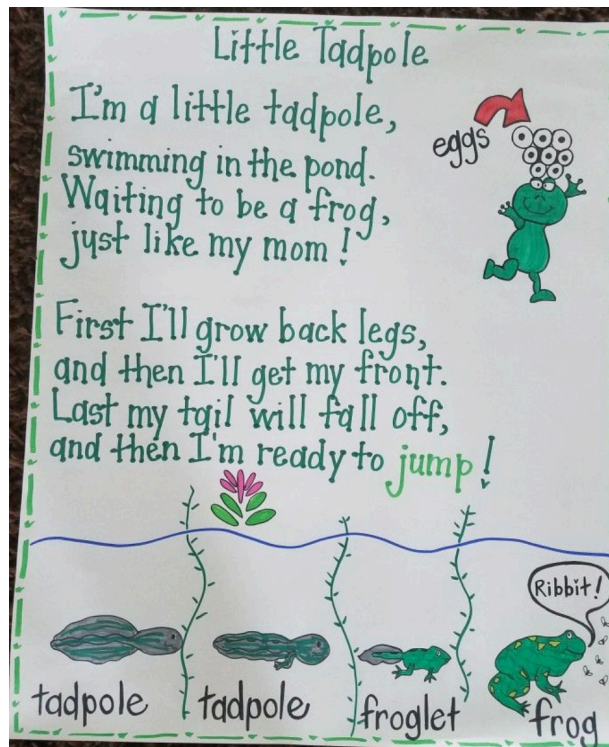 Little Tadpole
I'm a little tadpole,
swimming in the pond.
Waiting to be a frog,
just like my mom!
eggs
First I'll grow back legs,
and then I'll get my front.
Last my tail will fall off,
and then I'm ready to jump!
Ribbit!
tadpole
tadpole
froglet
frog